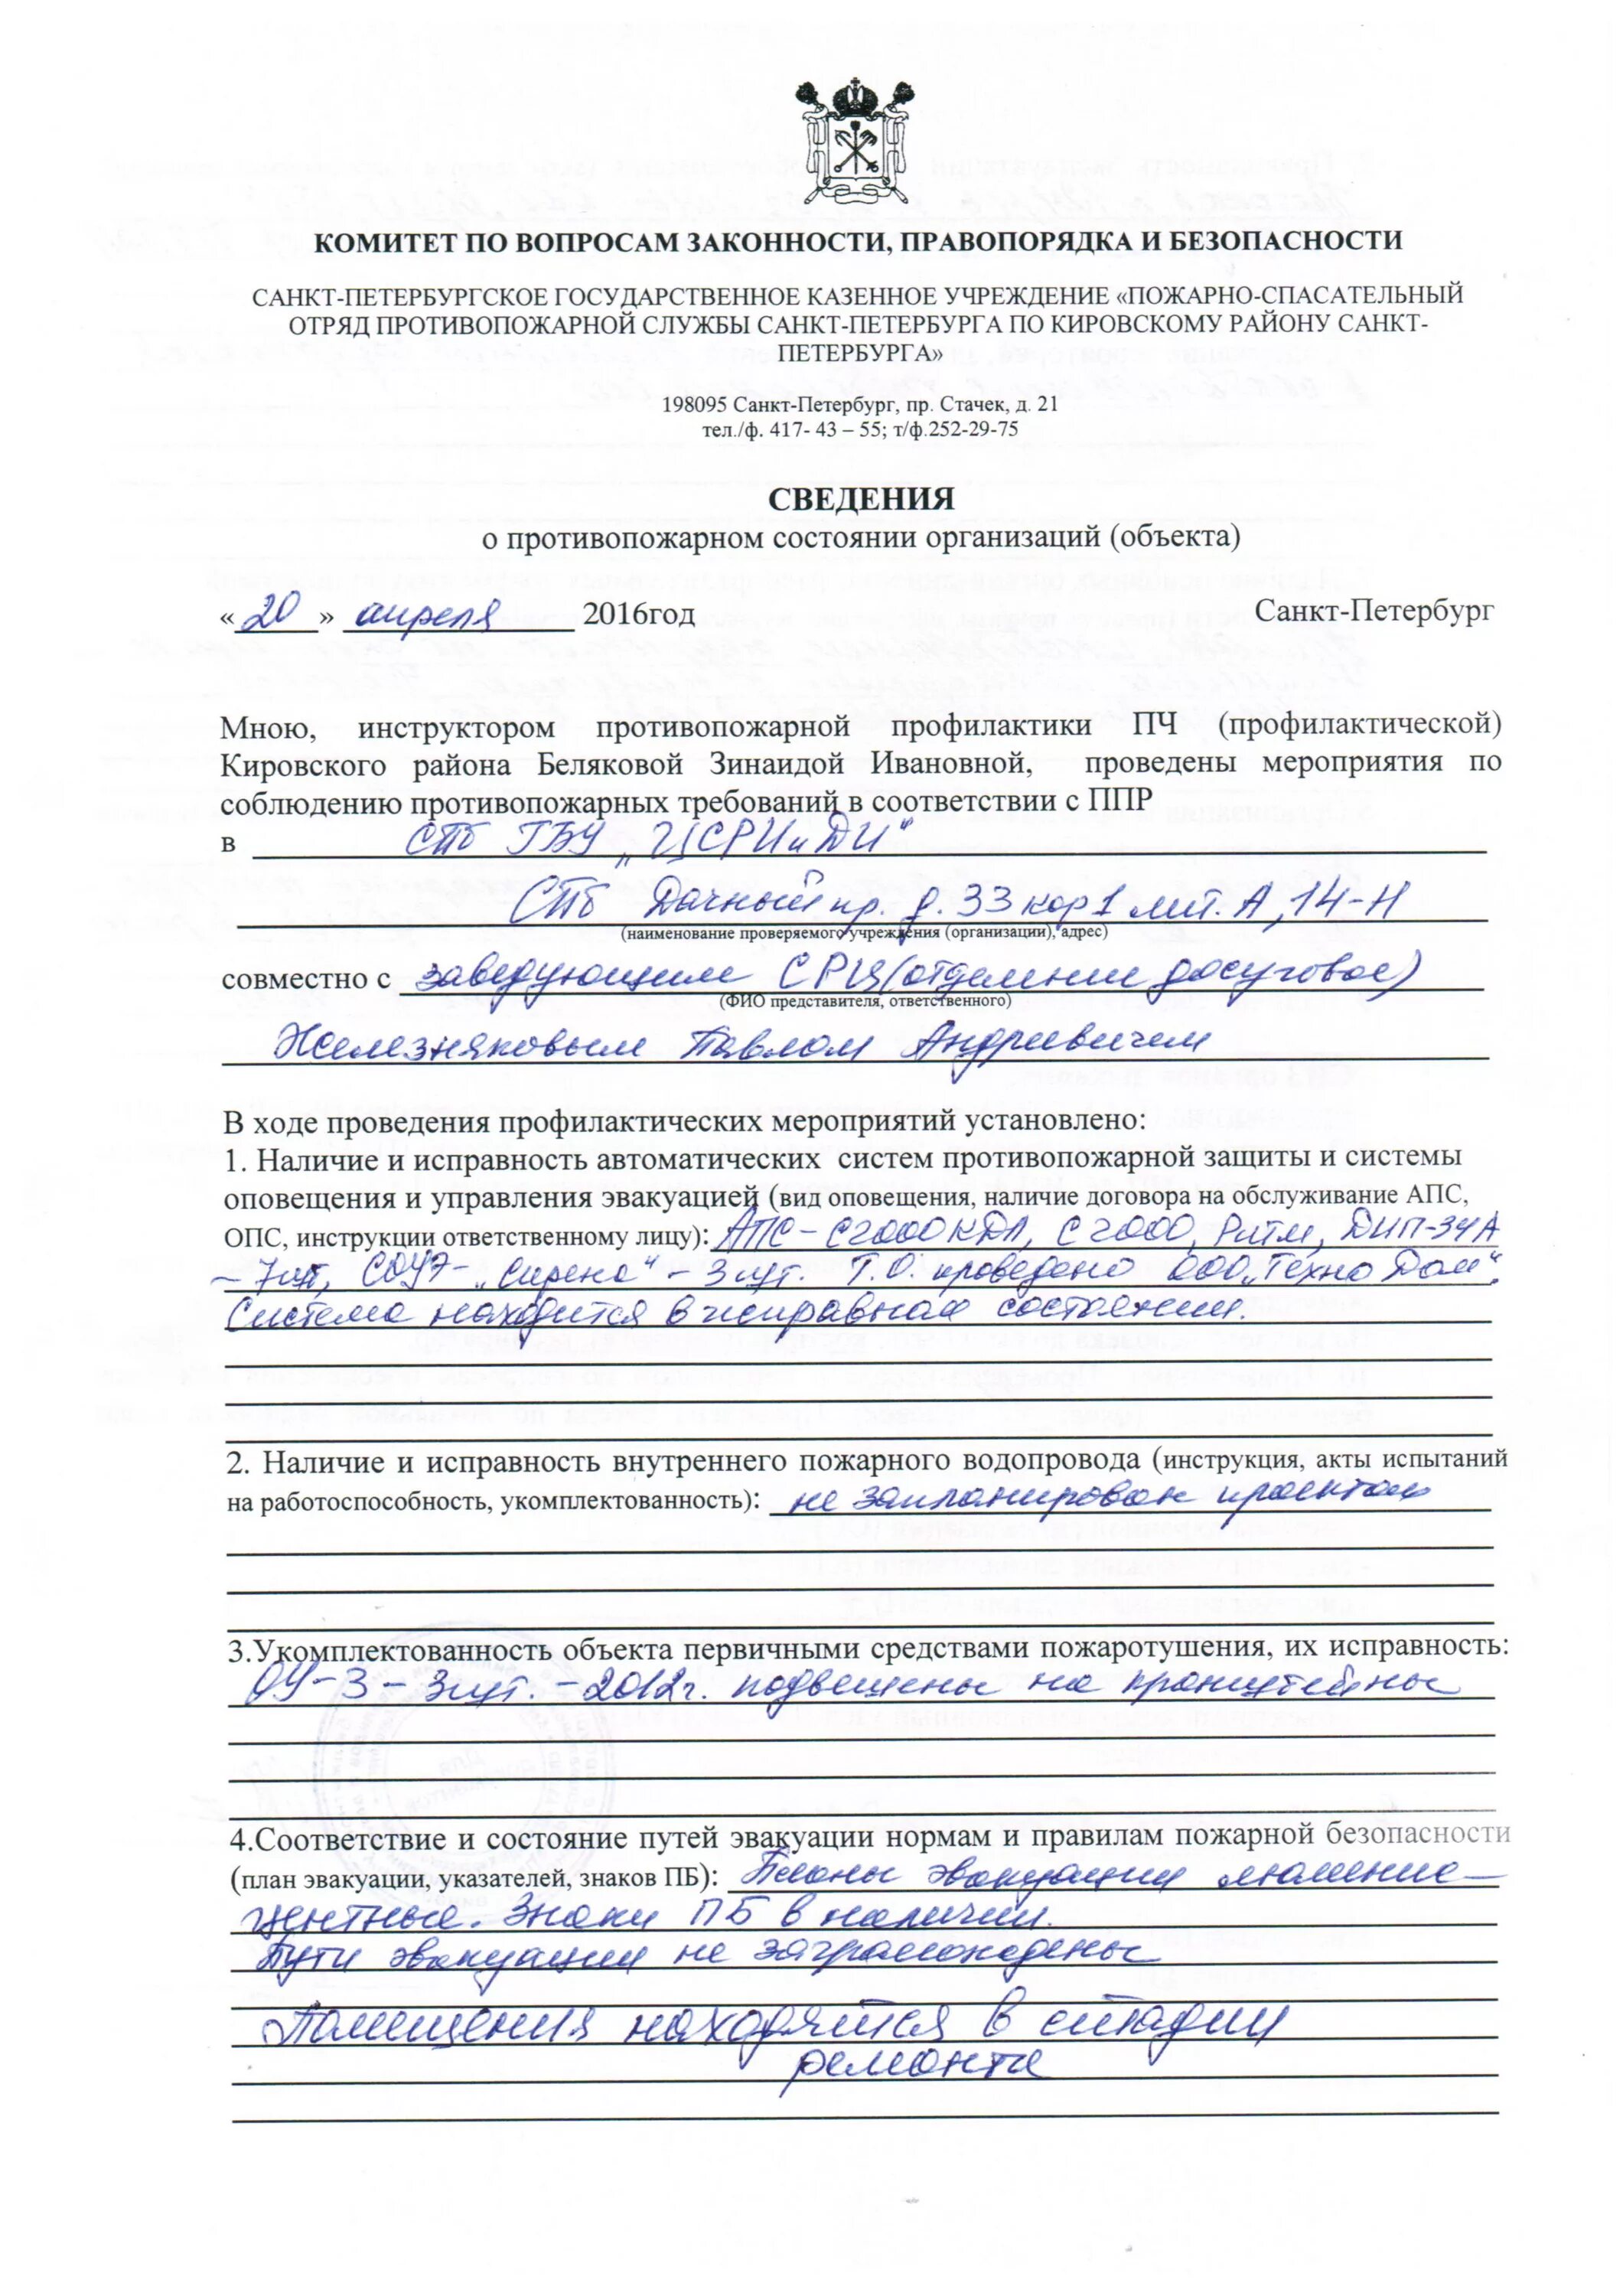 КОМИТЕТ ПО ВОПРОСАМ ЗАКОННОСТИ, ПРАВОПОРЯДКА И БЕЗОПАСНОСТИ
САНКТ-ПЕТЕРБУРГСКОЕ ГОСУДАРСТВЕННОЕ КАЗЕННОЕ УЧРЕЖДЕНИЕ «ПОЖАРНО-СПАСАТЕЛЬНЫЙ
ОТРЯД ПРОТИВОПОЖАРНОЙ СЛУЖБЫ САНКТ-ПЕТЕРБУРГА ПО КИРОВСКОМУ РАЙОНУ САНКТ-
ПЕТЕРБУРГА»
198095 Санкт-Петербург, пр. Стачек, д. 21
тел./ф. 417- 43 – 55; т/ф.252-29-75
СВЕДЕНИЯ
о противопожарном состоянии организаций (объекта)
«20» апреля 2016год Санкт-Петербург
Мною, инструктором противопожарной профилактики ПЧ (профилактической)
Кировского района Беляковой Зинаидой Ивановной, проведены мероприятия по
соблюдению противопожарных требований в соответствии с ППР
в СПб ГБУ „ЦСРИиДИ"
СПб Дачный пр. д. 33 кор 1 лит. А, 14-Н
(наименование проверяемого учреждения (организации), адрес)
совместно с заведующим СРЦ (отделение досуговое)
(ФИО представителя, ответственного)
Железняковым Павлом Андреевичем
В ходе проведения профилактических мероприятий установлено:
1. Наличие и исправность автоматических систем противопожарной защиты и системы
оповещения и управления эвакуацией (вид оповещения, наличие договора на обслуживание АПС,
ОПС, инструкции ответственному лицу): АПС – С2000КДЛ, С2000, Ритм, ДИП-34А
– 7шт, СОУЭ- „Сирена" – 3 шт. Т.О. проведено ООО „Техно Дом".
Система находится в исправном состоянии.
2. Наличие и исправность внутреннего пожарного водопровода (инструкция, акты испытаний
на работоспособность, укомплектованность): не запланирован проектом
3.Укомплектованность объекта первичными средствами пожаротушения, их исправность:
ОУ-3 – 3шт. – 2012г. подвешены на кронштейны
4.Соответствие и состояние путей эвакуации нормам и правилам пожарной безопасности
(план эвакуации, указателей, знаков ПБ): Планы эвакуации люмине-
сцентные. Знаки ПБ в наличии.
Пути эвакуации не загромождены
Помещения находятся в стадии
ремонта